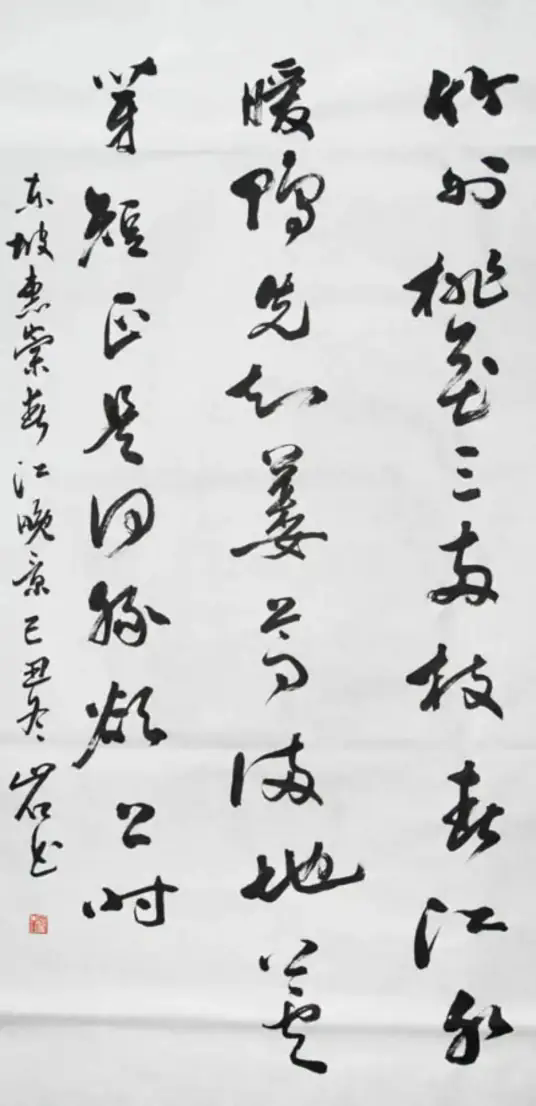 竹外桃花三兩枝春江水
暖鴨先知蔞蒿滿地蘆
芽短正是河豚欲上時
東坡惠崇春江晚景己丑冬岩書